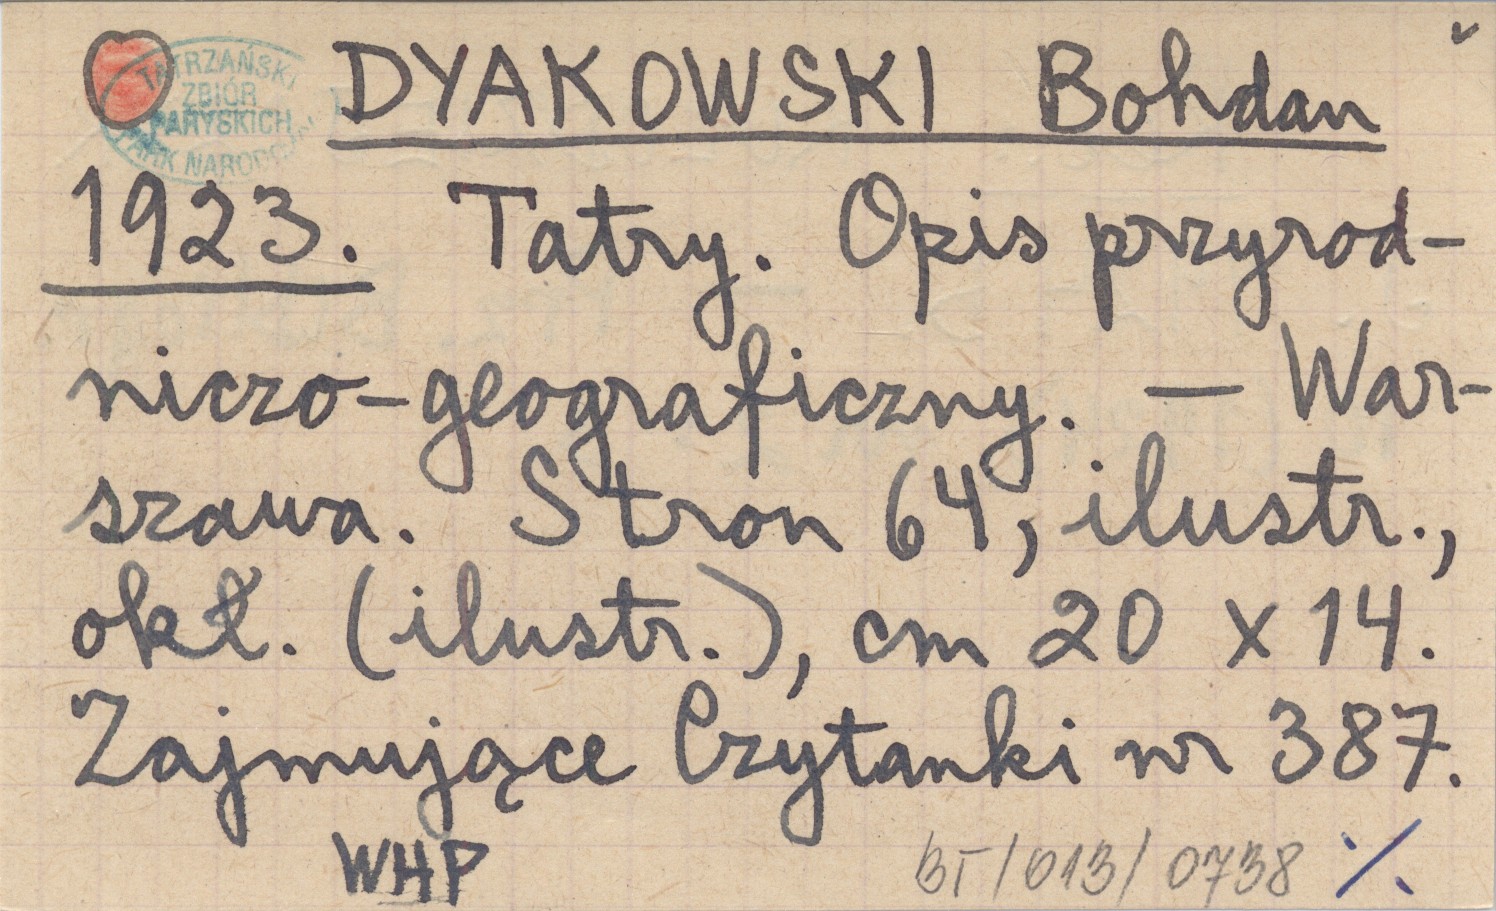 TATRZAŃSKI
ZBIÓR
PARYSKICH
PARK NARODOWY
DYAKOWSKI Bohdan
1923. Tatry. Opis przyrod-
niczo-geograficzny. — War-
szawa. Stron 64, ilustr.,
okł. (ilustr.), cm 20 x 14.
Zajmujące Czytanki nr 387.
WHP
BT/013/0738 ·/.